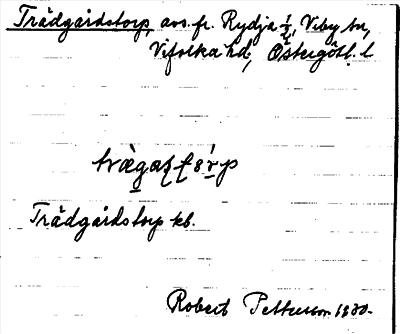 Trädgårdstorp, avs. fr. Rydja 1/2, Viby sn,
Vifolka hd, Östergötl. l
Trädgårdstorp kb.
Robert Pettersson 1930.